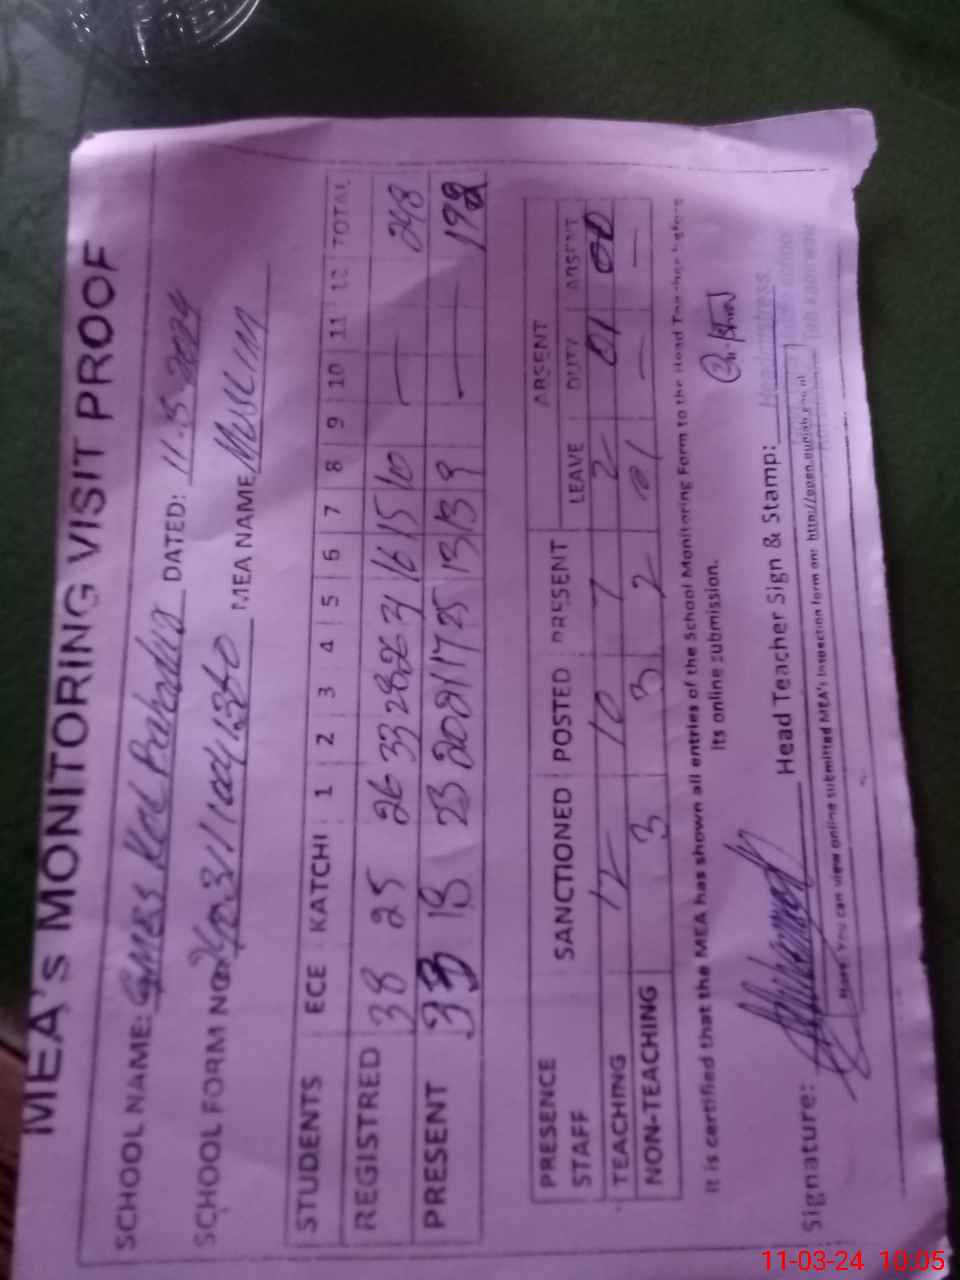 MEA's MONITORING VISIT PROOF
SCHOOL NAME: GMES Kot Bahadur DATED: 11-3-2024
SCHOOL FORM NO: MEA NAME Muslim
STUDENTS ECE KATCHI 1 2 3 4 5 6 7 8 9 10 11 12 TOTAL
REGISTRED 38 25 26 33 28 26 31 16 15 10 — 248
PRESENT 33 18 23 20 21 17 25 13 13 9 —
PRESENCE STAFF SANCTIONED POSTED PRESENT ABSENT
LEAVE DUTY ABSENT
TEACHING 12 10 7 2 01 00
NON-TEACHING 3 3 2 01 — —
It is certified that the MEA has shown all entries of the School Monitoring Form to the Head Teacher before
its online submission.
Signature: Head Teacher Sign & Stamp:
Headmistress
Note: You can view online submitted MEA's inspection form on: http://open.punjab.gov.pk
11-03-24 10:05